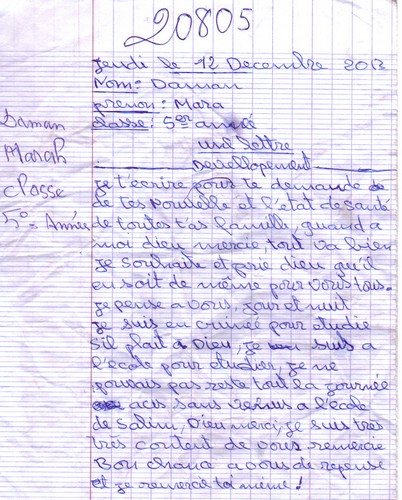 20805
Jeudi le 12 Decembre 2013
Nom: Daman
prenon: Mara
Classe: 5em année
une lettre
Developpement
Daman
Marah
classe
5e = Année
Je t'ecrire pour te demande de
de tes nouvelle et l'etat de santé
de toutes tas famills, quand a
moi dieu mercie tout va bien
Je souhaite et prie dieu qu'il
en soit de même pour vous tous.
Je pense a vous, jour et nuit
Je suis en pour etudie
s'il plaît a Dieu, je suis a
l'école pour etudier, je ne
pouvais pas reste tout la journée
acis sans venus a l'école
de salim, Dieu merci, je suis très
très content de vous remercie
Bon chance a vous de reponse
et je remercie toi même!